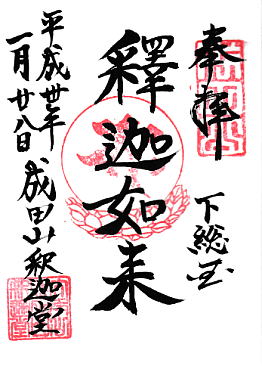 奉拝
下総国
釋迦如来
平成卅年
一月廿八日
成田山釈迦堂